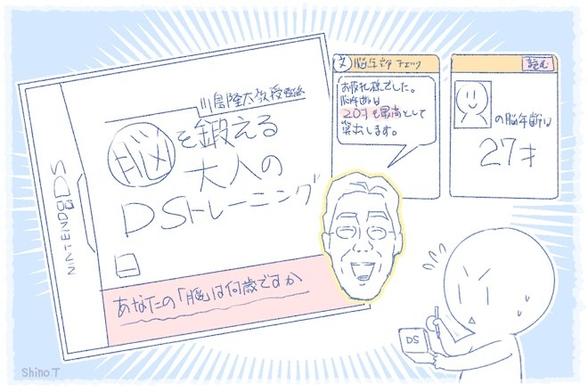 川島隆太教授監修
脳を鍛える
大人の
DSトレーニング
NINTENDO DS
あなたの「脳」は何歳ですか
脳年齢チェック
お疲れ様でした。
脳年齢は
20才を最高として
算出します。
読む
の脳年齢は
27才
DS
Shino T